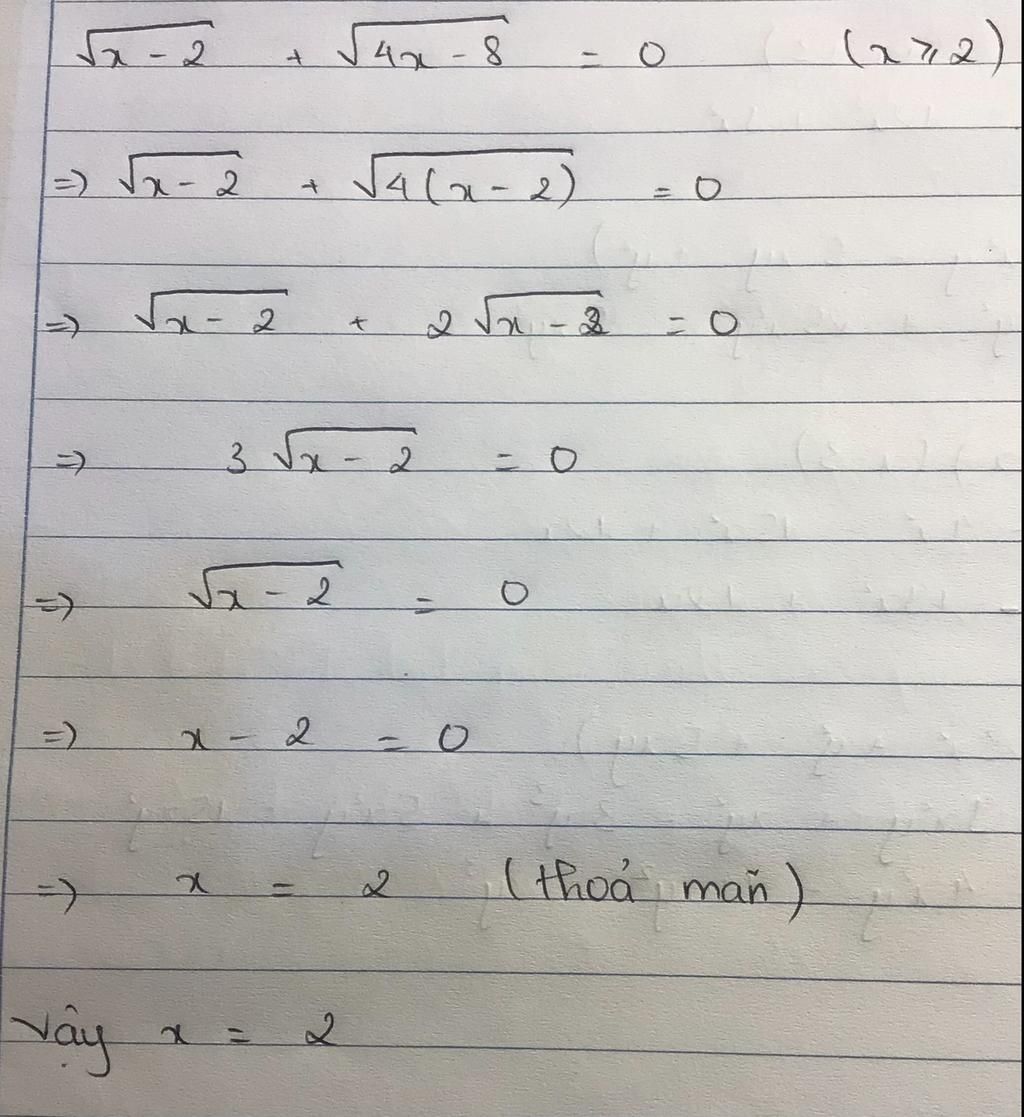 √(x - 2) + √(4x - 8) = 0 (x ⩾ 2)
=) √(x - 2) + √(4(x - 2)) = 0
=) √(x - 2) + 2√(x - 2) = 0
=) 3√(x - 2) = 0
=) √(x - 2) = 0
=) x - 2 = 0
=) x = 2 (thoả mãn)
Vậy x = 2